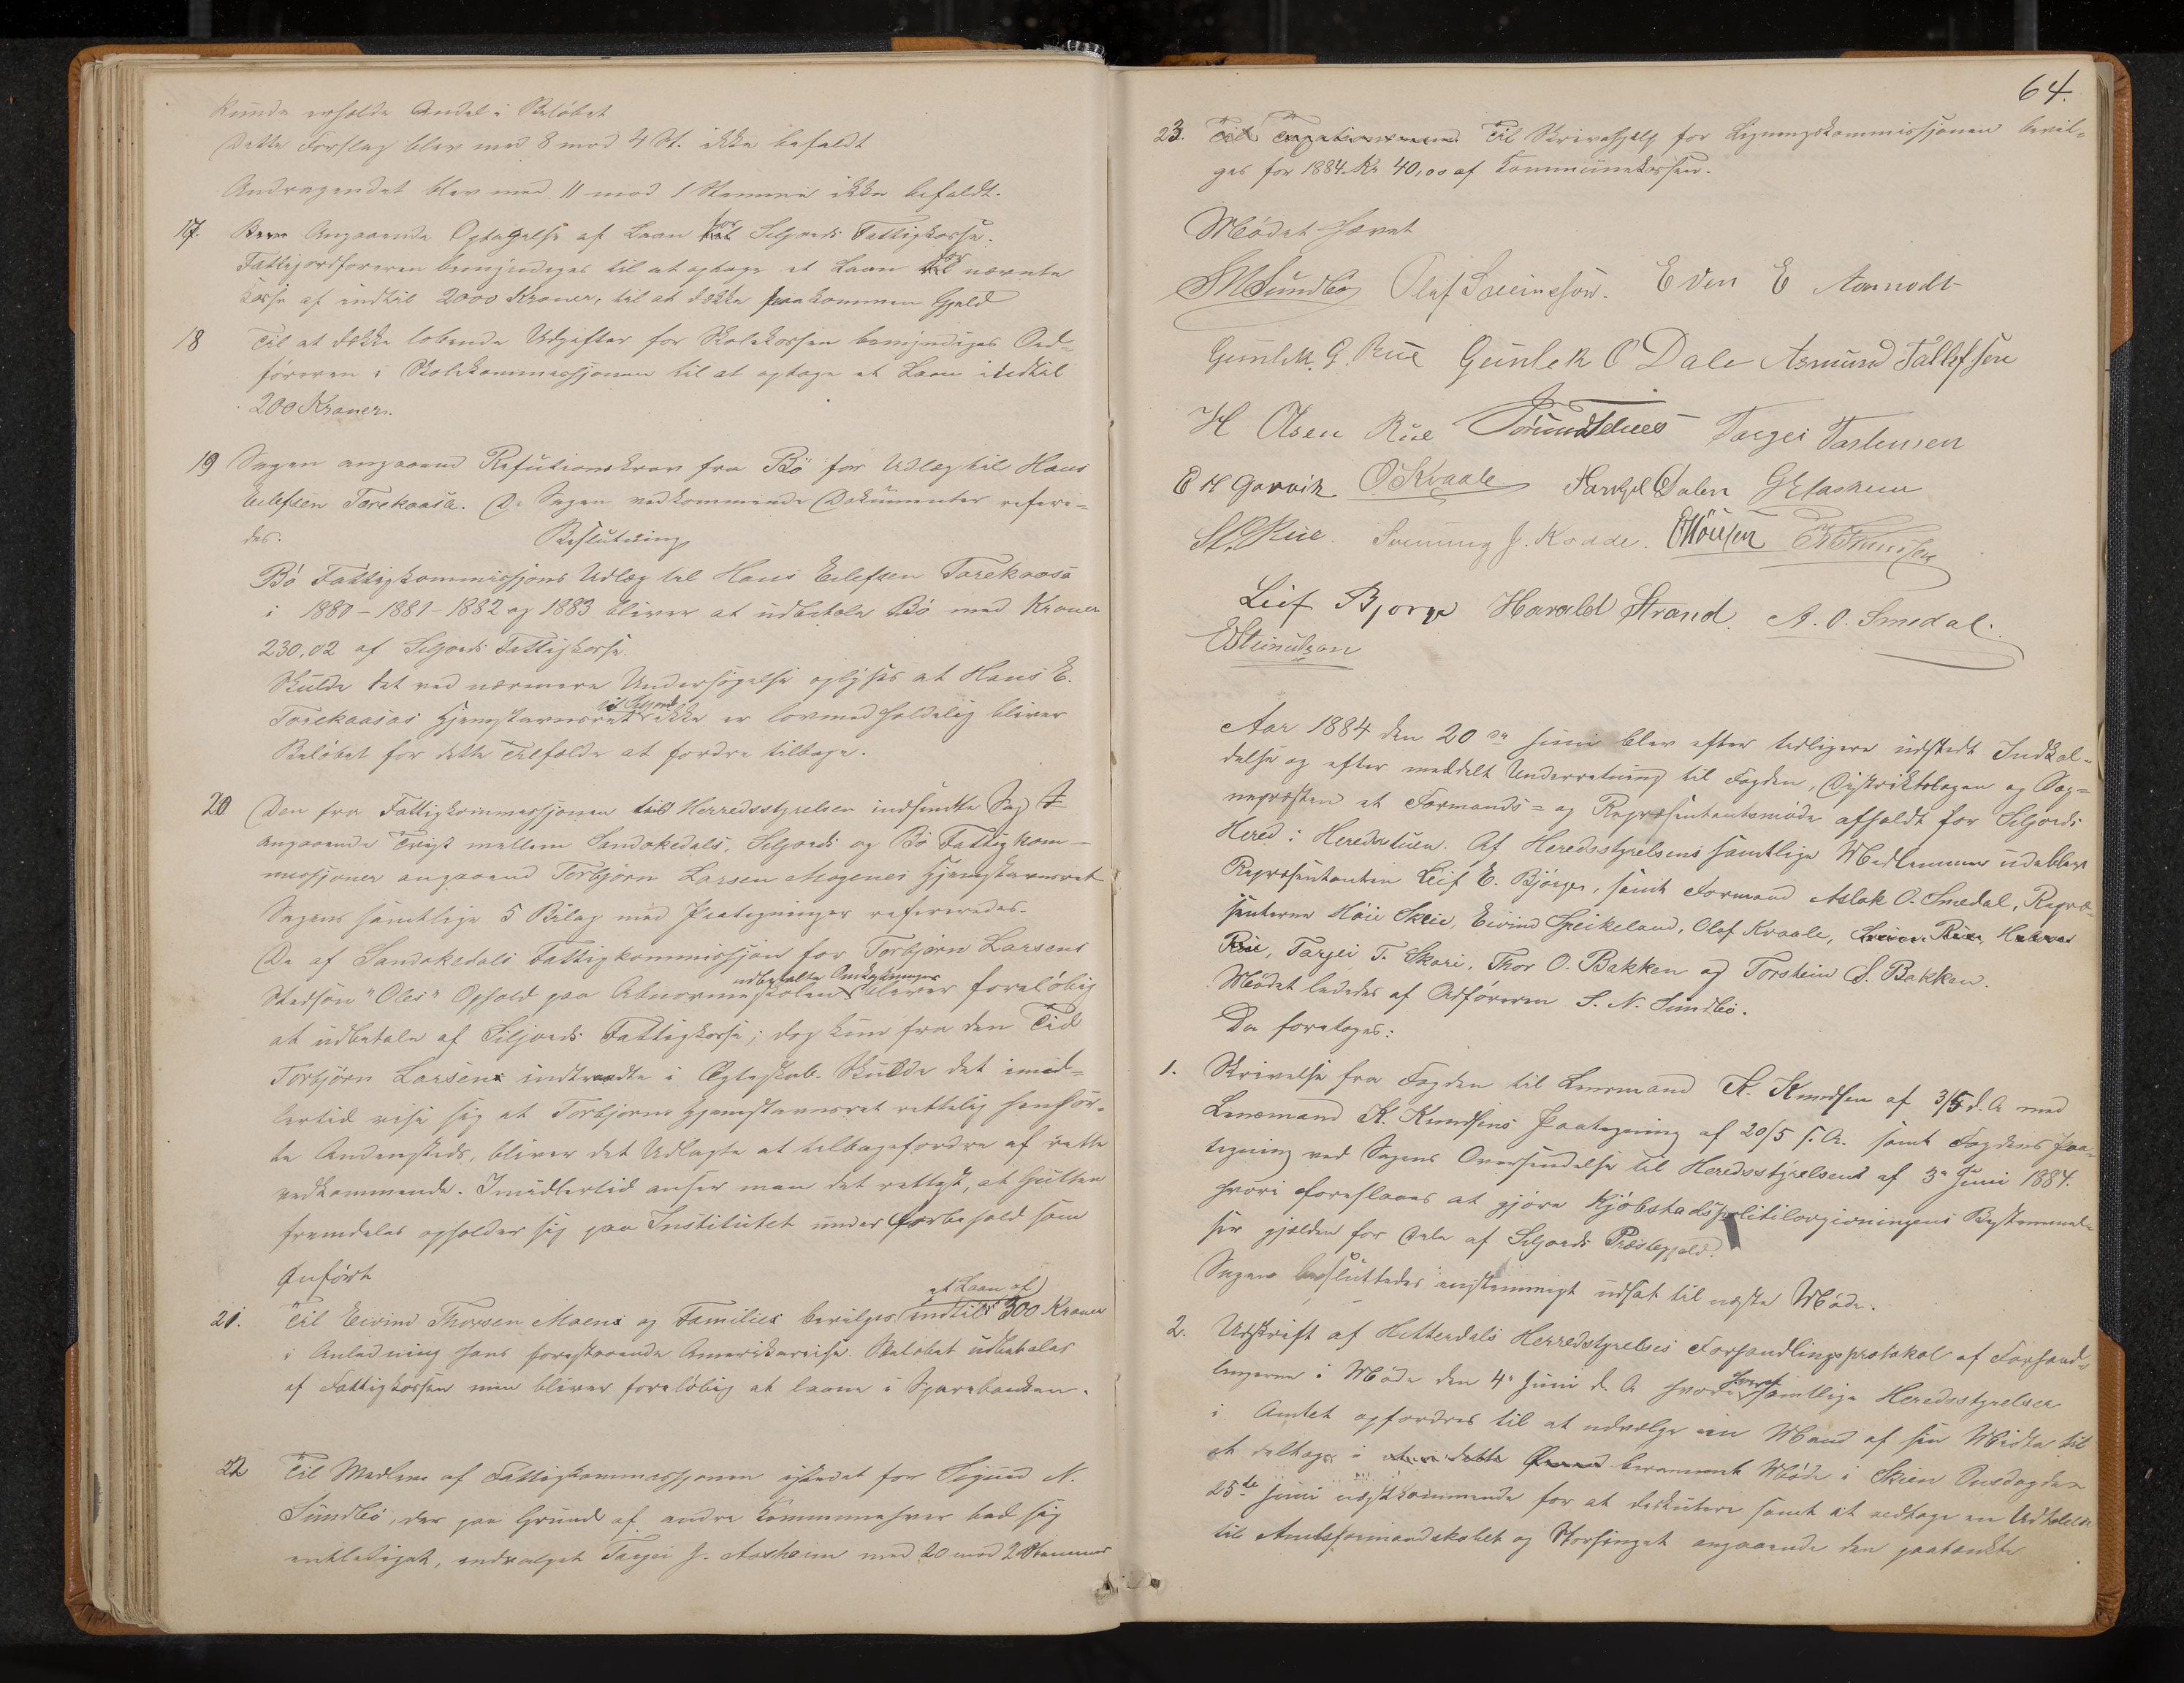 kunde erholde Andel i Beløbet
Dette Forslag blev med 8 mod 4 St. ikke befaldt
Andragendet blev med 11 mod 1 Stemme ikke befaldt.
17. Angaaende Optagelse af Laan for Seljords Fattigkasse.
Fattigordføreren bemyndiges til at optage et Laan for nævnte
Kasse af indtil 2000 Kroner, til at dække paakommen Gjæld
18 Til at dække løbende Udgifter for Skolekassen bemyndiges Ord-
føreren i Skolekommissjonen til at optage et Laan indtil
200 Kroner.
19 Sagen angaaend Refutionskrav fra Bø for Udlæg til Hans
Eilefsen Torekaasa. De Sagen vedkommende Dokumenter refere-
des. Beslutning
Bø Fattigkommissjons Udlæg til Hans Eilefsen Torekaasa
i 1880-1881-1882 og 1883 bliver at udbetale Bø med Kroner
230,02 af Seljords Fattigkasse.
Skulde det ved nærmere Undersøgelse oplyses at Hans E.
Torekaasas Hjemstavnsret i Seljord ikke er lovmedholdelig bliver
Beløbet for dette Tilfælde at fordre tilbage.
20 Den fra Fattigkommissjonen til Herredsstyrelsen indsendte Sag
angaaende Tvist mellem Sandøkedals, Seljords og Bø Fattigkom-
missjoner angaaend Torbjørn Larsen Mogenes Hjemstavnsret
Sagens samtlige 5 Bilag med Paategninger refereredes.
De af Sandøkedals Fattigkommissjon for Torbjørn Larsens
Stedsøn "Oles" Ophold paa Abnormskolen udbetalte Omkostninger bliver foreløbig
at udbetale af Siljords Fattigkasse; dog kun fra den Tid
Torbjørn Larsen indtraadte i Ægteskab. Skulde det imid-
lertid vise sig at Torbjørns Hjemstavnsret rettelig henhør-
te Andensteds, bliver det Udlagte at tilbagefordre af rette
vedkommende. Imidlertid anser man det rettest, at Gutten
fremdeles opholder sig paa Institutet under Forbehold som
Anført
21. Til Eivind Thorsen Moens og Familie bevilges et Laan af indtil 300 Kroner
i Anledning hans forestaaende Amerikareise. Beløbet udbetales
af Fattigkassen men bliver foreløbig at laane i Sparebanken.
22 Til Medlem af Fattigkommissjonen istedet for Sigurd N.
Sundbø, der paa Grund af andre Kommunehverv bad sig
entlediget, endvalgtes Targei J. Aasheim med 20 mod 2 Stemmer
64.
23. Til Skrivehjælp for Ligningskommissjonen bevil-
ges for 1884 Kr 40,00 af Kommunekassen.
Mødet hævet
SNSundbø Olaf Sveinsson. Even E Aamodt
Gunlek. G. Rue Gunlek O Dale Asmund Tallefsen
H Olsen Rue Targei Torstensen
E H Garvik OKvaale Dalen
Rue. Svenning J. Kodde.
Leif Bjørge Harald Strand. A. O. Smedal.
Aar 1884 den 20de Juni blev efter tidligere udstedt Indkal-
delse og efter meddelt Underretning til Fogden, Distriktslægen og Sog-
nepræsten et Formands- og Repræsentantmøde afholdt for Seljords
Hered i Heredsstuen. Af Heredsstyrelsens samtlige Medlemmer udeblev
Repræsentanten Leif E. Bjørge, samt Formand Aslak O. Smedal, Repræ-
senterne Høie Skeie, Eivind Speikeland, Olaf Kvaale, Halvor
Rue, Targei T. Skori, Thor O. Bakken og Torstein S. Bakken.
Mødet lededes af Ordføreren S. N. Sundbø.
Da foretoges:
1. Skrivelse fra Fogden til Lensmand K. Knudsen af 3/5 d. A. med
Lensmand K. Knudsens Paategning af 20/5 s. A. samt Fogdens Paa-
tegning ved Sagens Oversendelse til Heredsstyrelsen af 3de Juni 1884.
hvori foreslaaes at gjøre Kjøbstadspolitilovgivningens Bestemmel-
ser gjælden for Dele af Seljords Præstegjeld.
Sagen besluttedes enstemmigt udsat til næste Møde.
2. Udskrift af Hitterdals Herredsstyrelses Forhandlingsprotokol af Forhand-
lingerne i Møde den 4de Juni d. A. hvorved samtlige Heredsstyrelser
i Amtet opfordres til at udvælge en Mand af sin Midte til
at deltage i berammet Møde i Skien Onsdag den
25de Juni næstkommende for at diskutere samt at vedtage en Udtalelse
til Amtsformandskabet og Storthinget angaaende den paatænkte